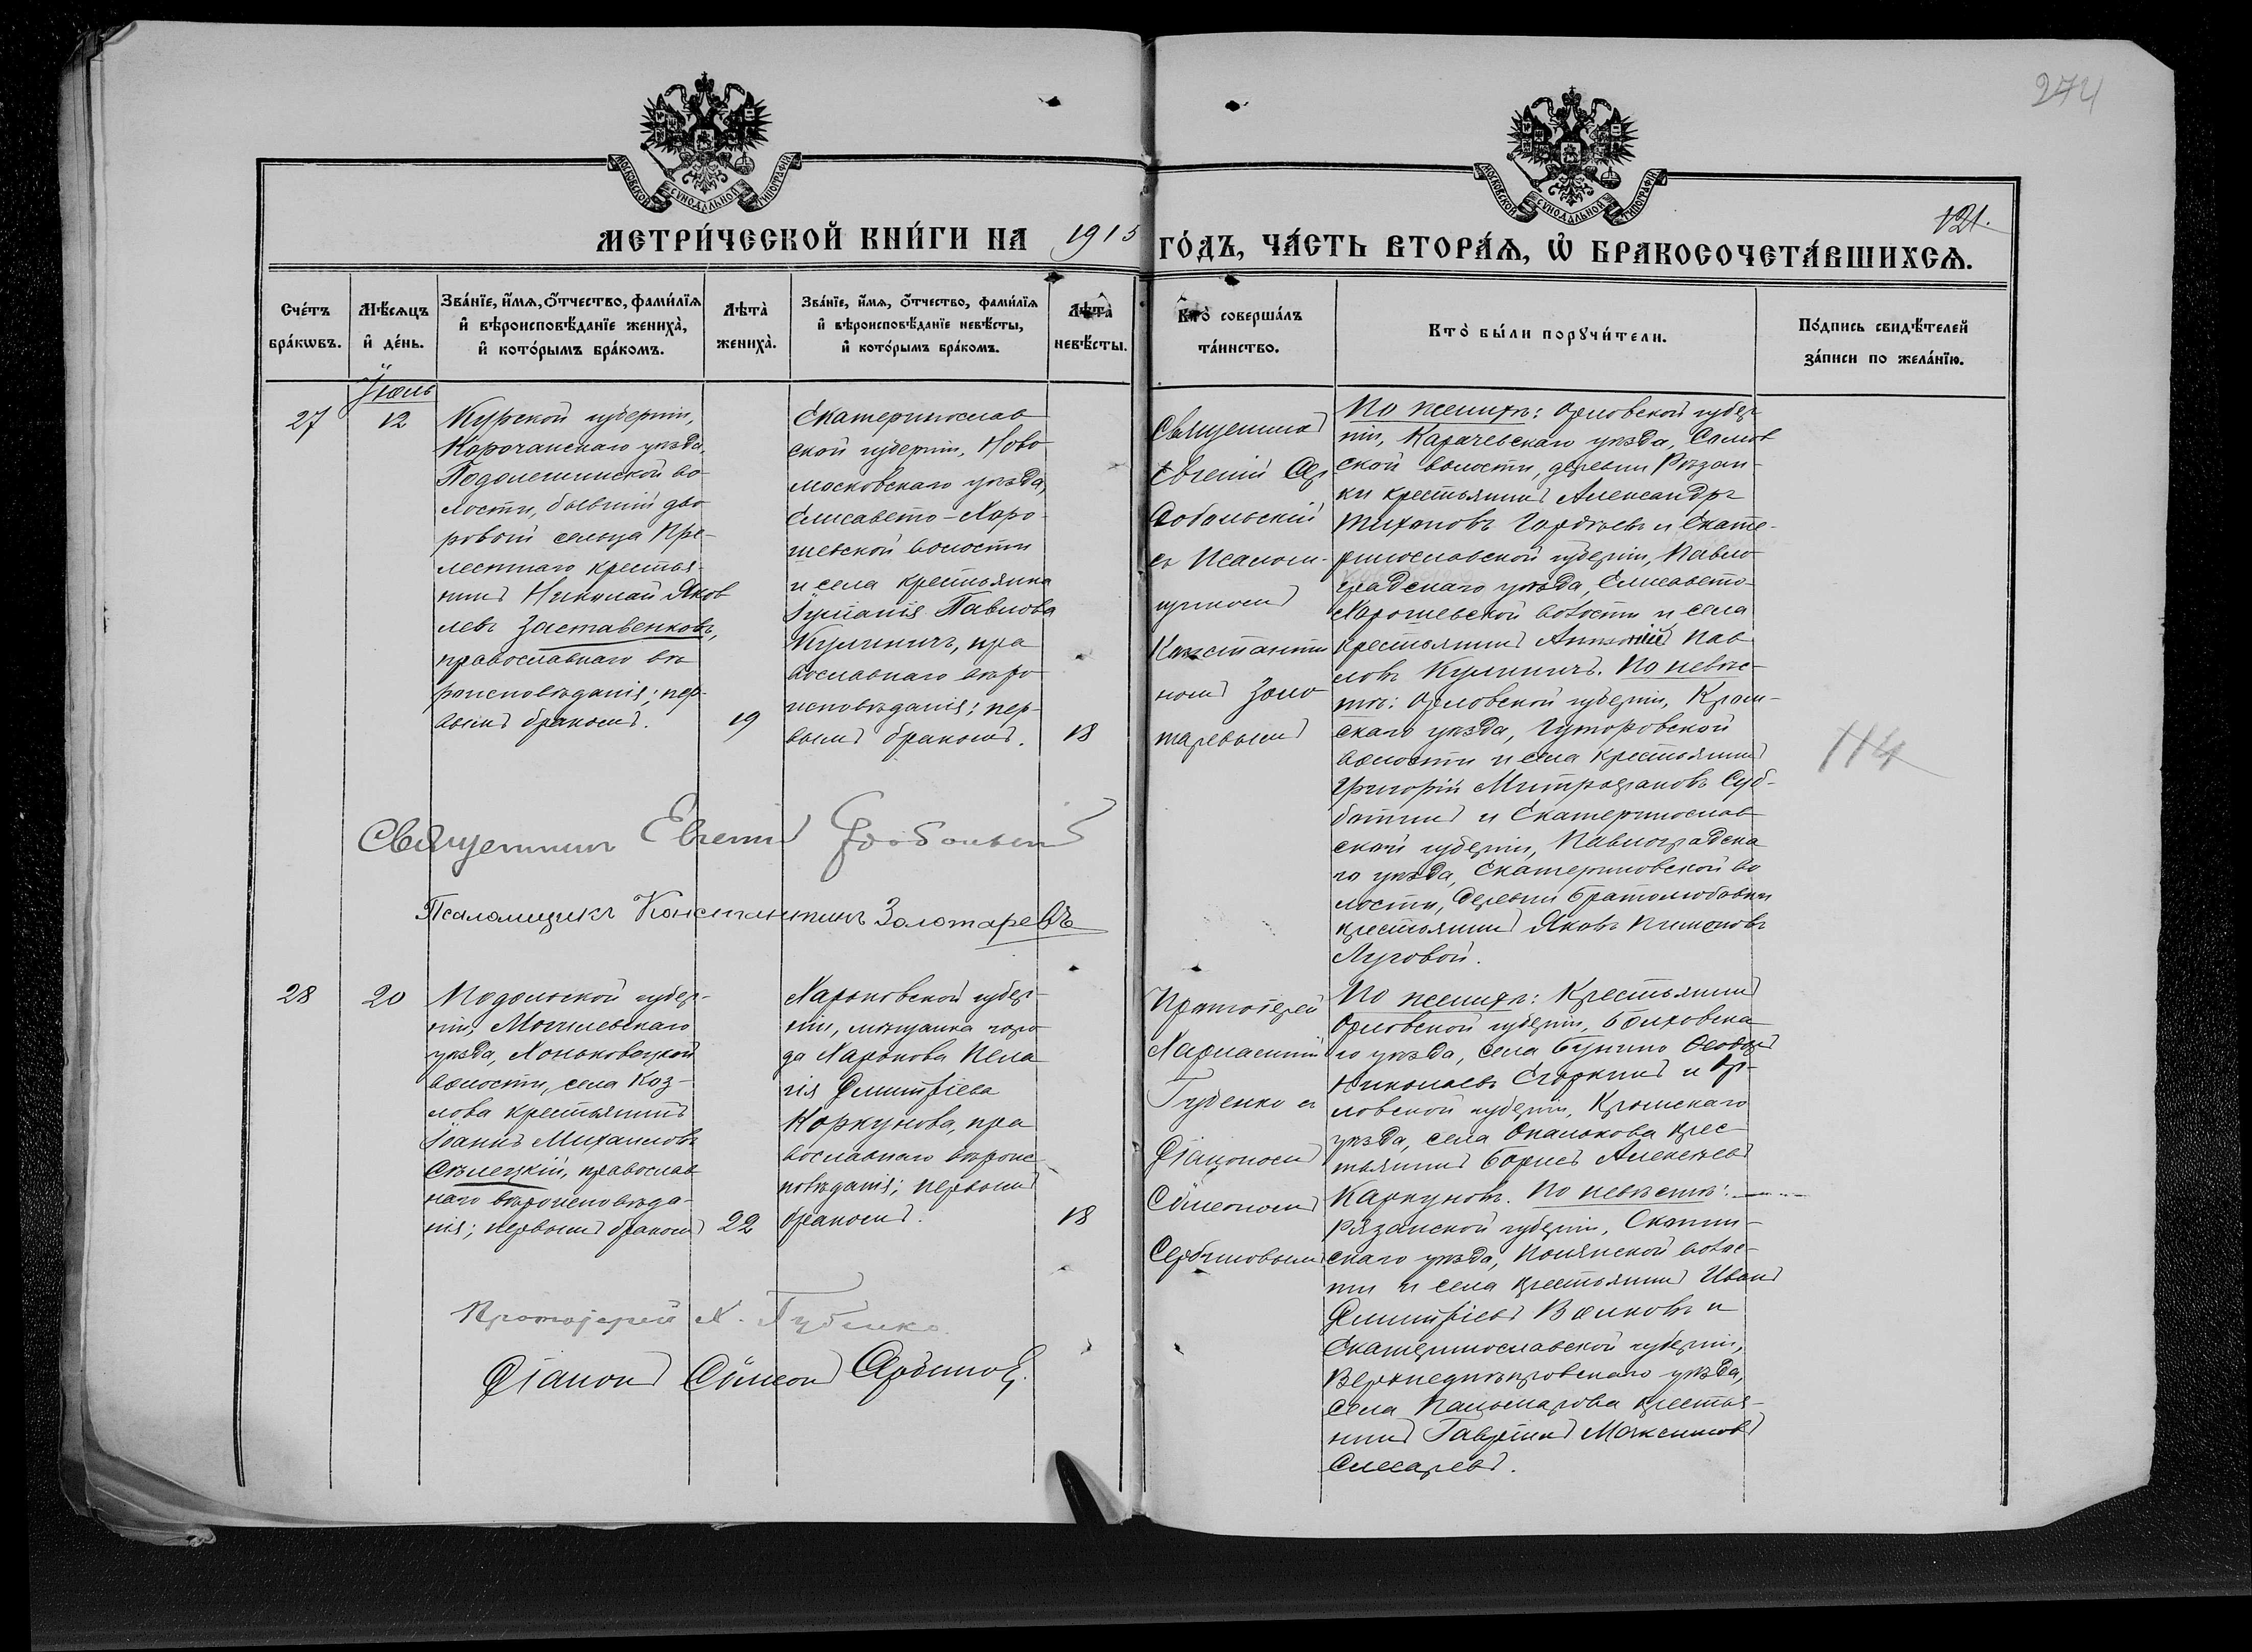 274
121.
МОСКОВСКОЙ СѴНОДАЛЬНОЙ ТИПОГРАФІИ
МОСКОВСКОЙ СѴНОДАЛЬНОЙ ТИПОГРАФІИ
МЕТРИ́ЧЕСКОЙ КНИ́ГИ НА 1915 ГО́ДЪ, ЧА́СТЬ ВТОРА́Ѧ, Ѡ҆ БРАКОСОЧЕТА́ВШИХСѦ.
Сче́тъ
бра́кѡвъ.
Мѣ́сѧцъ
и҆ де́нь.
Зва́нїе, и҆́мѧ, ѻ҆́тчество, фами́лїѧ
и҆ вѣроисповѣ́данїе жениха̀,
и҆ кото́рымъ бра́комъ.
Лѣта̀
жениха̀.
Зва́нїе, и҆́мѧ, ѻ҆́тчество, фами́лїѧ
и҆ вѣроисповѣ́данїе невѣ́сты,
и҆ кото́рымъ бра́комъ.
Лѣта̀
невѣ́сты.
Кто̀ соверша́лъ
та́инство.
Кто̀ бы́ли порꙋчи́тели.
По́дпись свидѣ́телей
за́писи по жела́нїю.
Іюль
27
12
Курской губерніи,
Корочанскаго уѣзда,
Подолешинской во-
лости, бывшій дво
ровой сельца Пре-
лестнаго крестья-
нинъ Николай Яков
левъ Заставенковъ,
православнаго вѣ
роисповѣданія; пер-
вымъ бракомъ.
19
Екатеринослав
ской губерніи, Ново
московскаго уѣзда,
Елисавето-Хоро
шевской волости
и села крестьянка
Іуліанія Павлова
Кулиничъ, пра
вославнаго вѣро
исповѣданія; пер-
вымъ бракомъ.
18
Священникъ
Евгеній
съ Псаломщикомъ
Константи
номъ Золо
таревымъ
По женихѣ: Орловской губер
ніи, Карачевскаго уѣзда,
ской волости, деревни Рязан-
ки крестьянинъ Александръ
Тихоновъ Гордѣевъ и Екате-
ринославской губерніи, Павло
градскаго уѣзда, Елисавето-
Хорошевской волости и села
крестьянинъ Антоній Пав
ловъ Кулиничъ. По невѣс-
тѣ: Орловской губерніи, Кром-
скаго уѣзда, Гуторовской
волости и села крестьянинъ
Григорій Митрофановъ Суб-
ботинъ и Екатеринослав
ской губерніи, Павлоградска
го уѣзда, Екатериновской во
лости, деревни Братолюбовки
крестьянинъ Яковъ Пименовъ
Луговой.
114
Священникъ Евгеній
Псаломщикъ Константинъ Золотаревъ
28
20
Подольской губер-
ніи, Могилевскаго
уѣзда, Хоньковецкой
волости, села Коз-
лова крестьянинъ
Іоаннъ Михаиловъ
Сѣлецкій, православ
наго вѣроисповѣда-
нія; первымъ бракомъ
22
Харьковской губер-
ніи, мѣщанка горо
да Харькова Пела
гія Димитріева
Коркунова, пра
вославнаго вѣроис
повѣданія; первымъ
бракомъ.
18
Протоіерей
Харлампій
Губенко съ
Діакономъ
Сѵмеономъ
Сербиновымъ
По женихѣ: Крестьянинъ
Орловской губерніи, Болховска
го уѣзда, села Бунино Ѳеодоръ
Николаевъ Егоркинъ и Ор-
ловской губерніи, Кромскаго
уѣзда, села Опалькова крес-
тьянинъ Борисъ Алексѣевъ
Каркуновъ. По невѣстѣ:
Рязанской губерніи, Скопин-
скаго уѣзда, волос-
ти и села крестьянинъ Иванъ
Димитріевъ Волковъ и
Екатеринославской губерніи,
Верхнеднѣпровскаго уѣзда,
села крестья-
нинъ Гавріилъ Максимовъ
Слесаревъ.
Протоіерей Х. Губенко
Діаконъ Сѵмеонъ Сербиновъ.